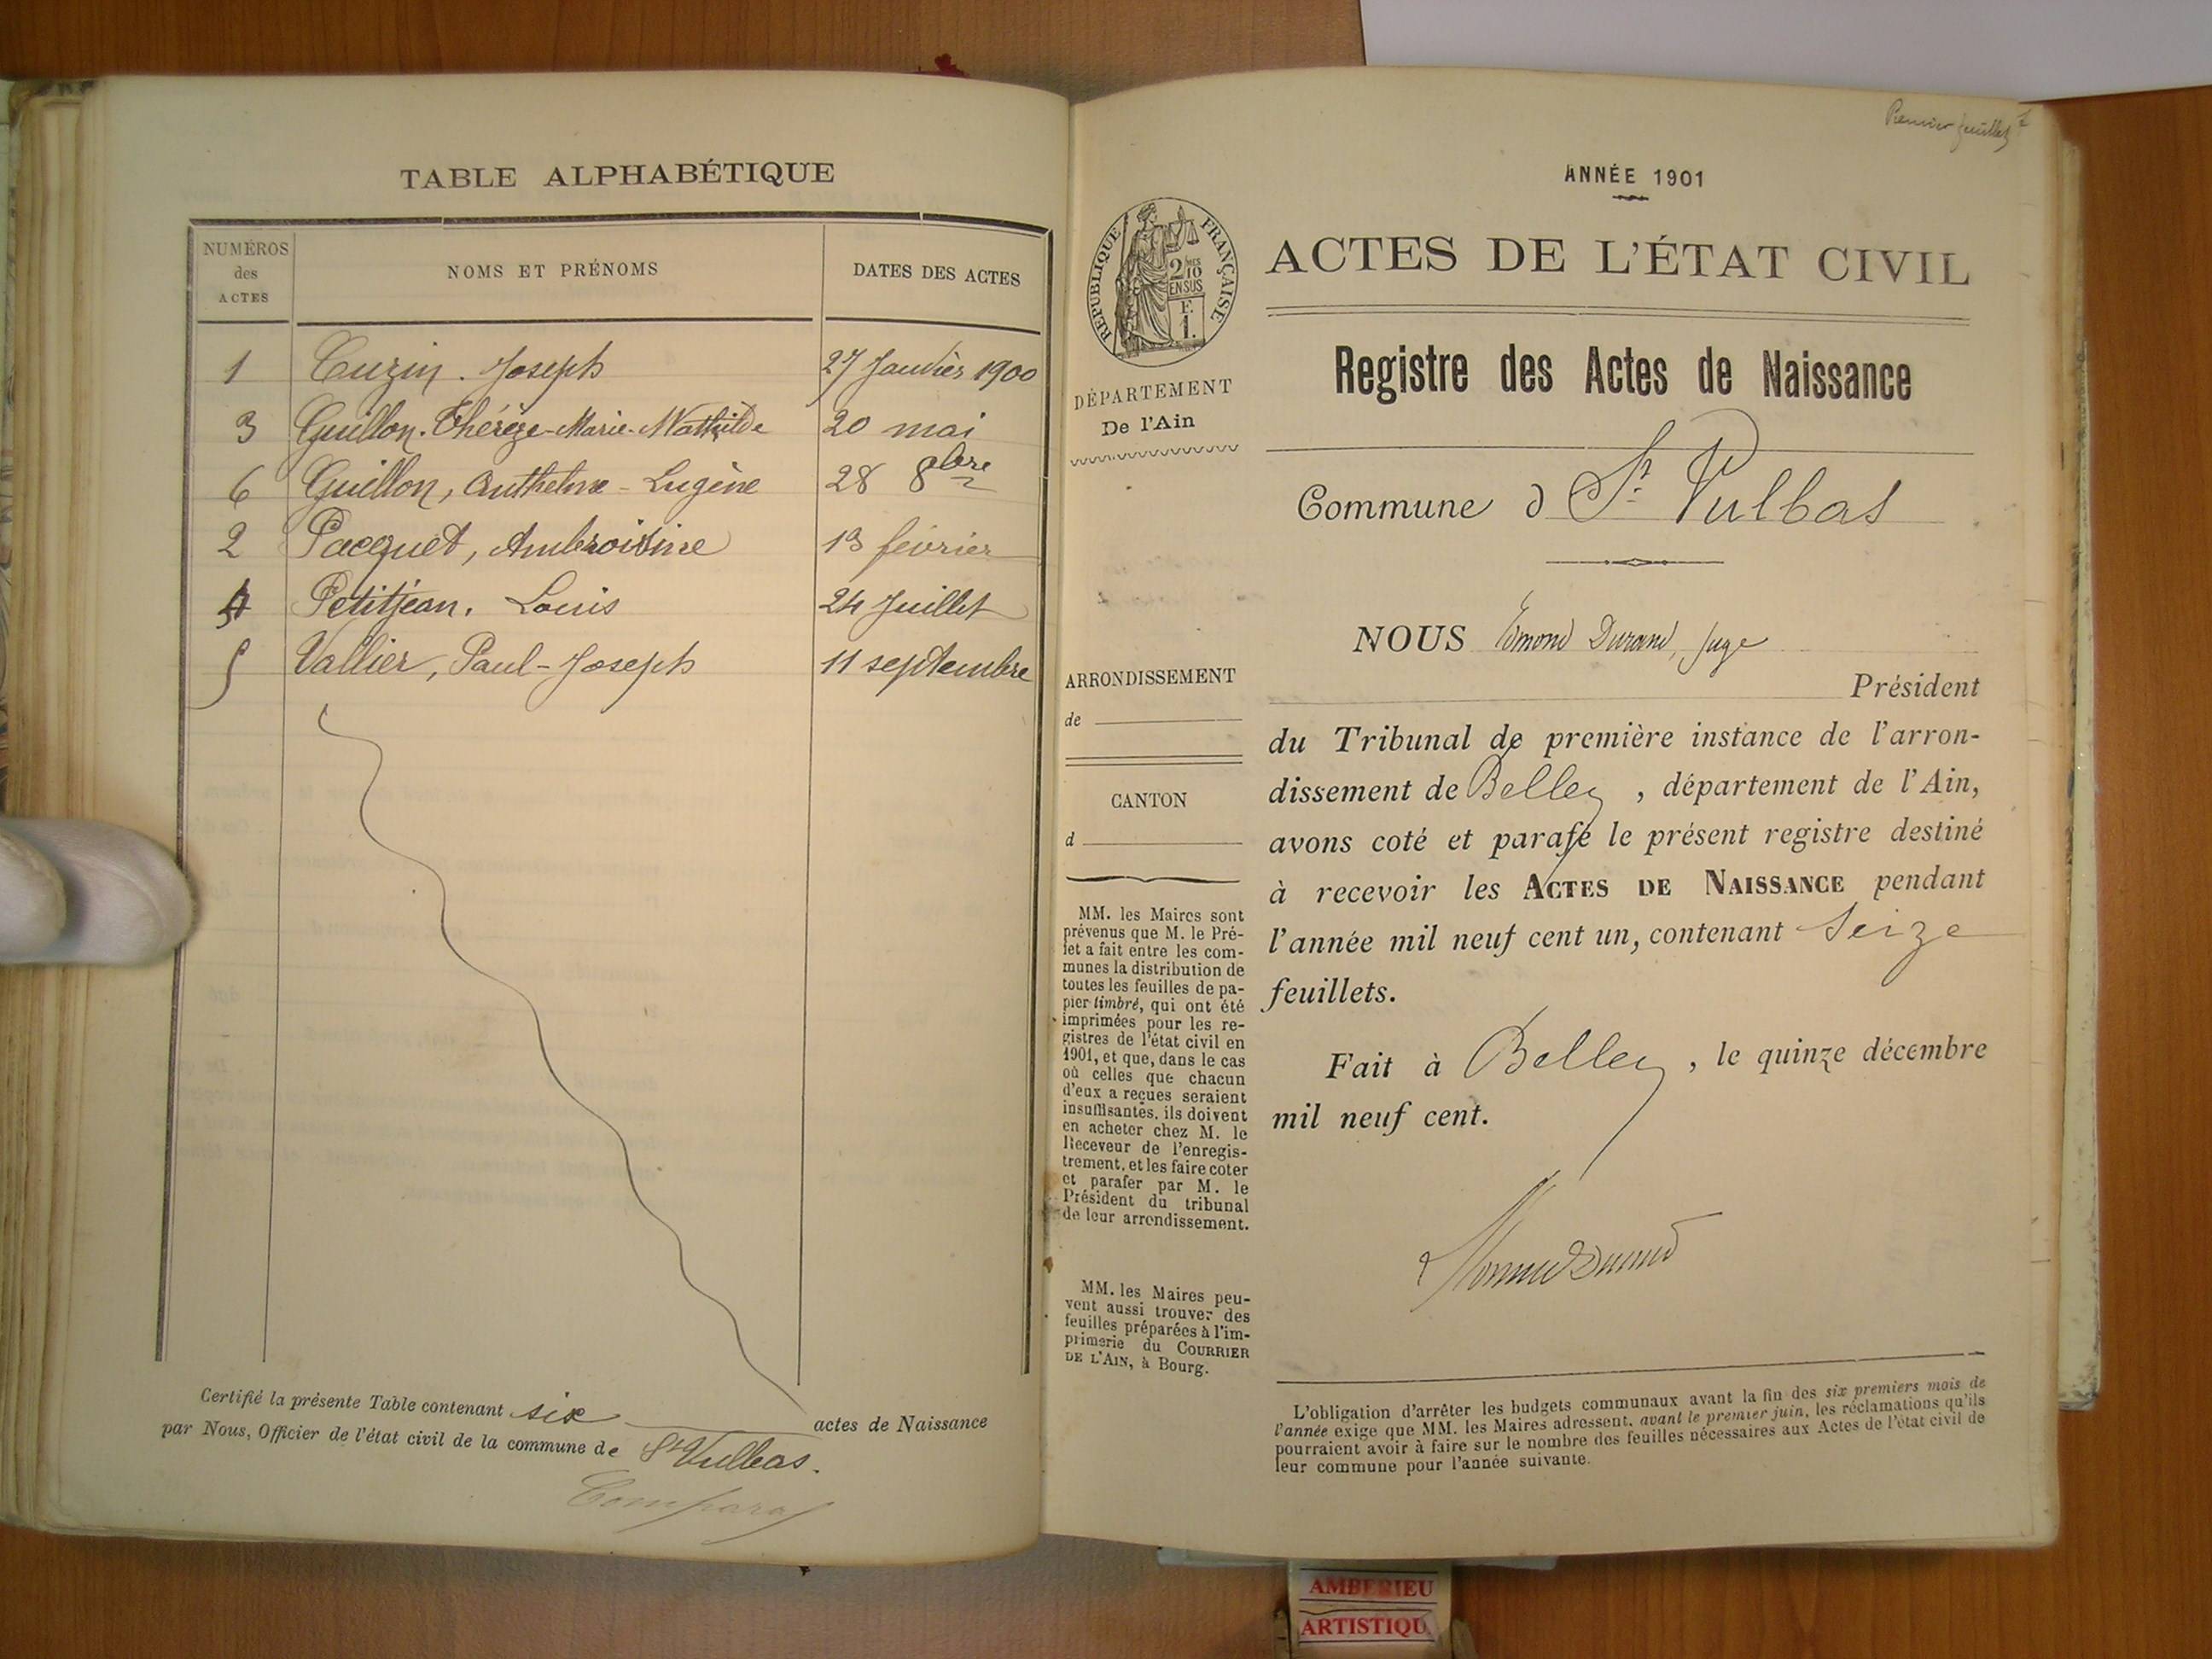 TABLE ALPHABÉTIQUE
NUMÉROS
des
ACTES
NOMS ET PRÉNOMS
DATES DES ACTES
1 Cuzin. Joseph 27 Janvier 1900
3 Guillon. Thérèze-Marie-Mathilde 20 mai
6 Guillon, Anthelme-Eugène 28 8bre
2 Pacquet, Ambroisine 13 février
4 Petitjean. Louis 24 Juillet
5 Vallier, Paul-Joseph 11 septembre
Certifié la présente Table contenant six actes de Naissance
par Nous, Officier de l'état civil de la commune de St Vulbas.
Premier feuillet
ANNÉE 1901
RÉPUBLIQUE FRANÇAISE
2/10
EN SUS
F.
1.
ACTES DE L'ÉTAT CIVIL
Registre des Actes de Naissance
DÉPARTEMENT
De l'Ain
Commune d St Vulbas
NOUS Edmond Durand, Juge
Président
du Tribunal de première instance de l'arron-
dissement de Belley, département de l'Ain,
avons coté et parafé le présent registre destiné
à recevoir les ACTES DE NAISSANCE pendant
l'année mil neuf cent un, contenant Seize
feuillets.
Fait à Belley, le quinze décembre
mil neuf cent.
ARRONDISSEMENT
de
CANTON
d
MM. les Maires sont
prévenus que M. le Pré-
fet a fait entre les com-
munes la distribution de
toutes les feuilles de pa-
pier timbré, qui ont été
imprimées pour les re-
gistres de l'état civil en
1901, et que, dans le cas
où celles que chacun
d'eux a reçues seraient
insuffisantes, ils doivent
en acheter chez M. le
Receveur de l'enregis-
trement, et les faire coter
et parafer par M. le
Président du tribunal
de leur arrondissement.
MM. les Maires peu-
vent aussi trouver des
feuilles préparées à l'im-
primerie du COURRIER
DE L'AIN, à Bourg.
L'obligation d'arrêter les budgets communaux avant la fin des six premiers mois de
l'année exige que MM. les Maires adressent, avant le premier juin, les réclamations qu'ils
pourraient avoir à faire sur le nombre des feuilles nécessaires aux Actes de l'état civil de
leur commune pour l'année suivante.
AMBERIEU
ARTISTIQU